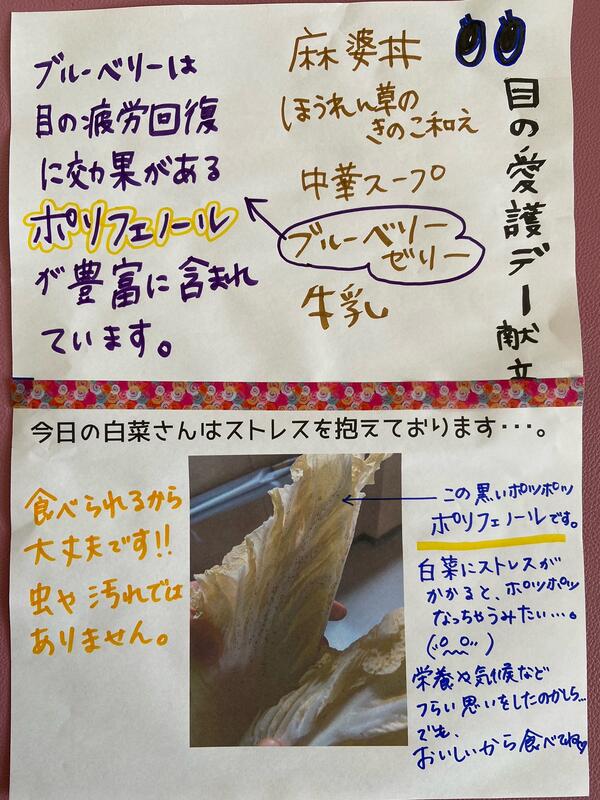 目の愛護デー献立
麻婆丼
ほうれん草の
きのこ和え
中華スープ
ブルーベリー
ゼリー
牛乳
ブルーベリーは
目の疲労回復
に効果がある
ポリフェノール
が豊富に含まれ
ています。
今日の白菜さんはストレスを抱えております･･･。
食べられるから
大丈夫です!!
虫や汚れでは
ありません。
この黒いポツポツ
ポリフェノールです。
白菜にストレスが
かかると、ポツポツ
なっちゃうみたい…。
栄養や気候など
つらい思いをしたのかしら…
でも、
おいしいから食べてね♡